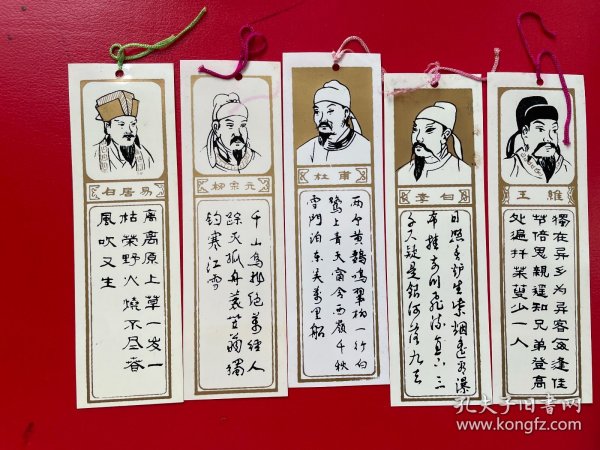 白居易
离离原上草一岁一
枯榮野火燒不尽春
风吹又生
柳宗元
千山鸟飛绝萬径人
踪灭孤舟蓑笠翁獨
钓寒江雪
杜甫
两个黄鹂鸣翠柳一行白
鹭上青天窗含西嶺千秋
雪門泊东吴萬里船
李白
日照香炉生紫烟遥看瀑
布挂前川飛流直下三
千尺疑是银河落九天
王維
獨在异乡为异客每逢佳
节倍思親遥知兄弟登高
处遍插茱萸少一人
孔夫子旧书网
www.kongfz.com